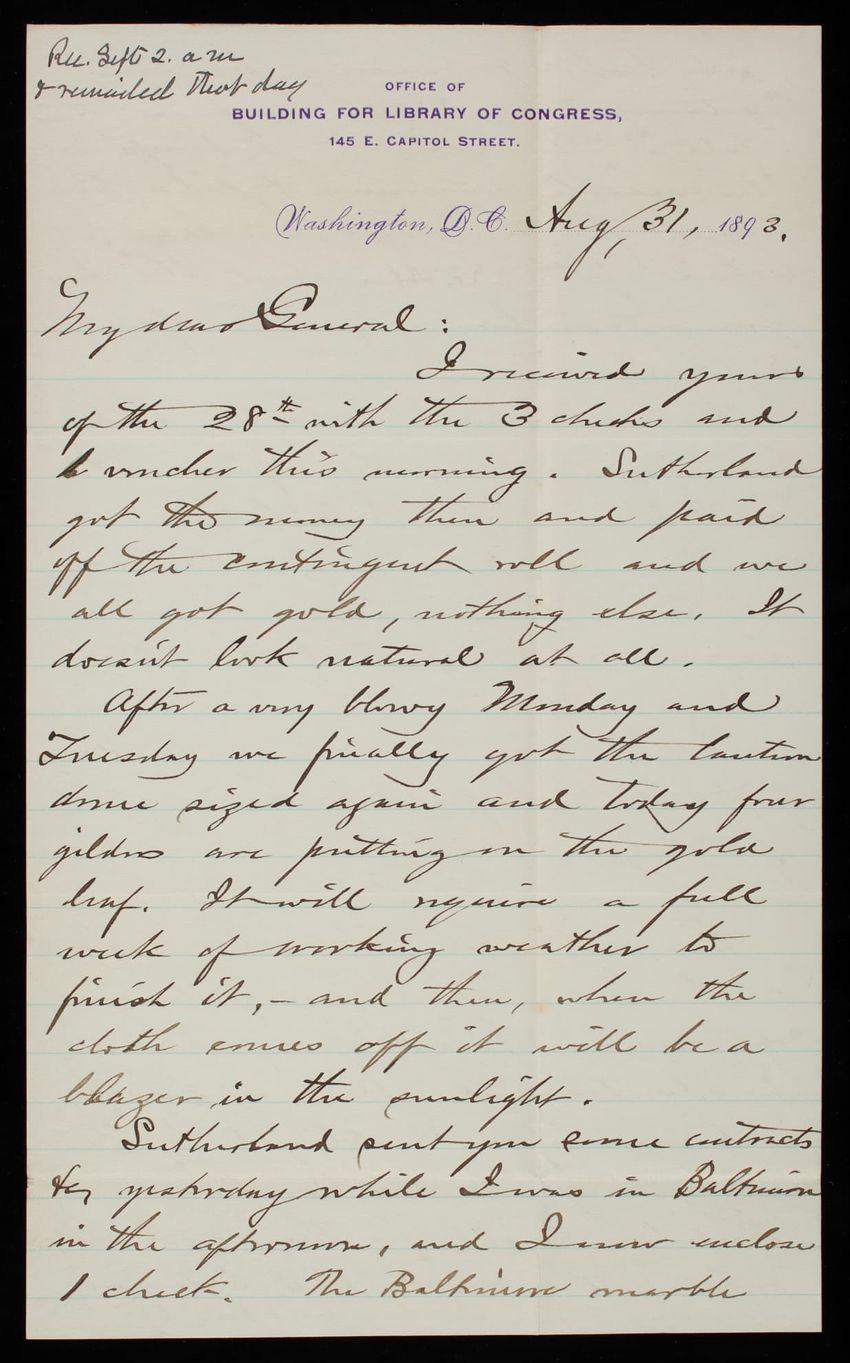 Rec. Sept 2. a m
& remailed that day
OFFICE OF
BUILDING FOR LIBRARY OF CONGRESS,
145 E. CAPITOL STREET.
Washington, D.C. Aug, 31, 1893.
My dear General:
I received yours
of the 28th with the 3 checks and
1 voucher this morning. Sutherland
got the money then and paid
off the contingent roll and we
all got gold, nothing else. It
doesn't look natural at all.
After a very blowy Monday and
Tuesday we finally got the lantern
dome sized again and today four
gilders are putting on the gold
leaf. It will require a full
week of working weather to
finish it, - and then, when the
cloth comes off it will be a
blazer in the sunlight.
Sutherland sent you some contracts
&c, yesterday while I was in Baltimore
in the afternoon, and I now enclose
1 check. The Baltimore marble